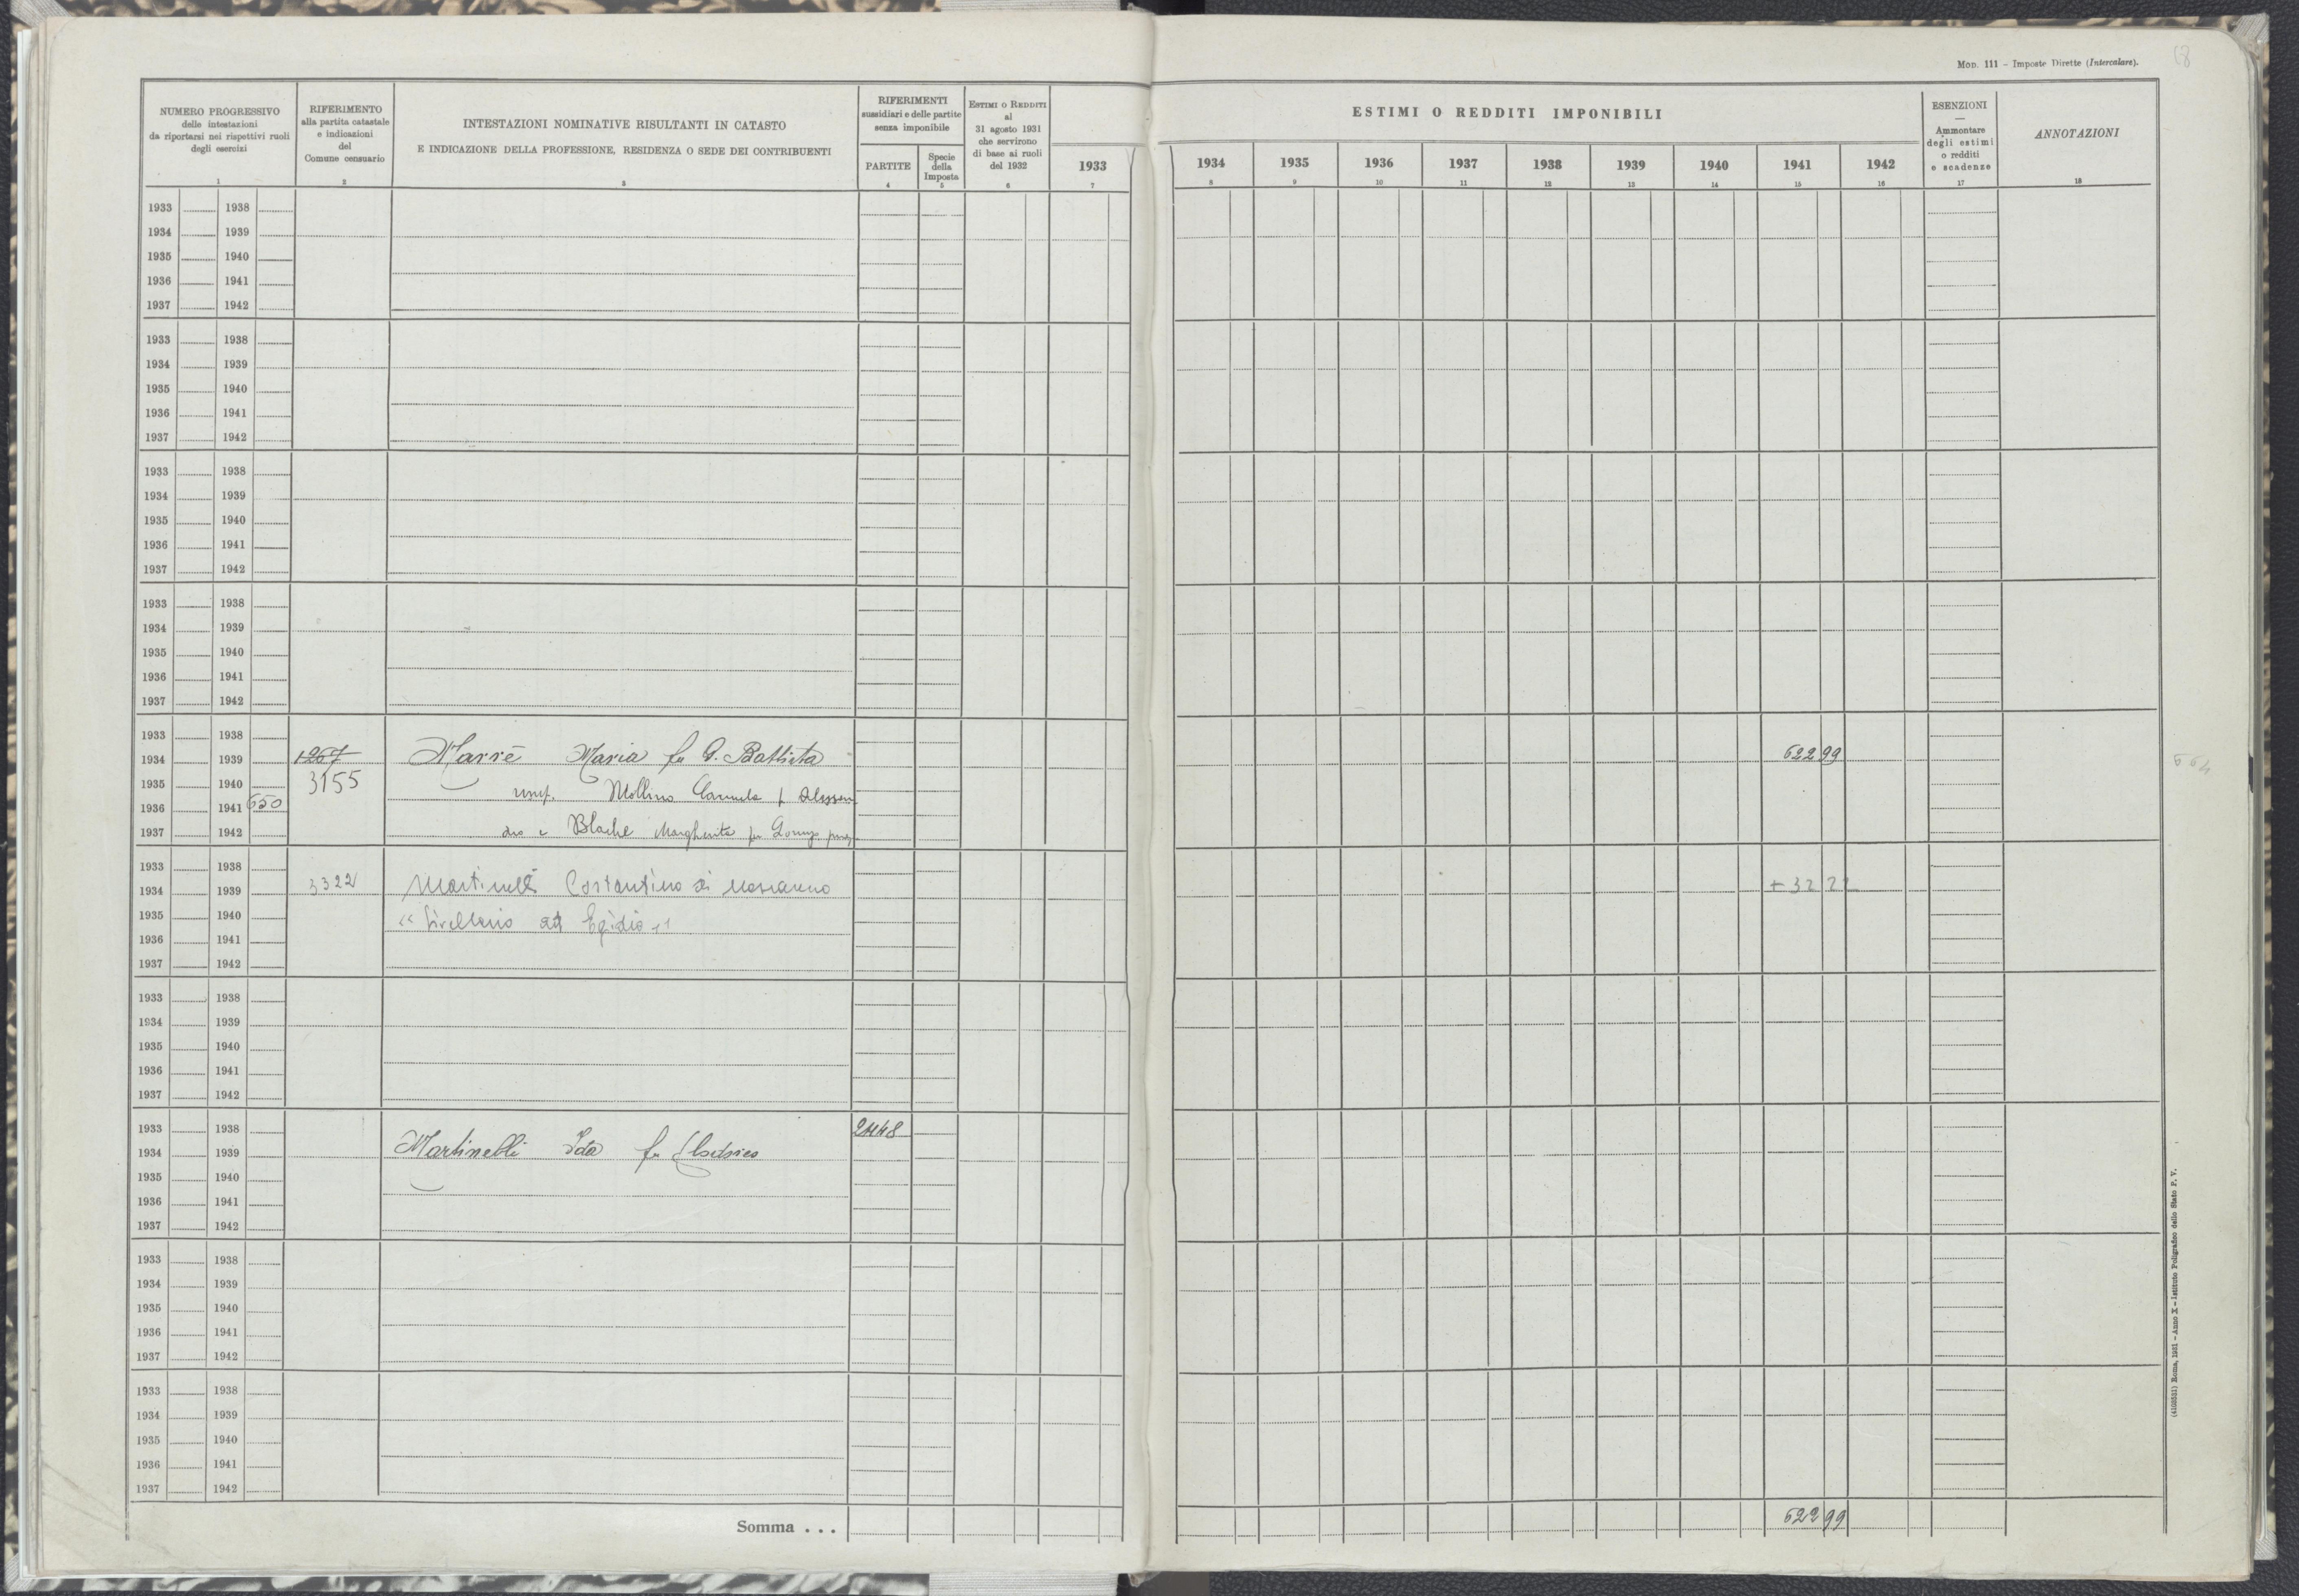 68
Mod. 111 – Imposte Dirette (Intercalare).
NUMERO PROGRESSIVO
delle intestazioni
da riportarsi nei rispettivi ruoli
degli esercizi
1
RIFERIMENTO
alla partita catastale
e indicazioni
del
Comune censuario
2
INTESTAZIONI NOMINATIVE RISULTANTI IN CATASTO
E INDICAZIONE DELLA PROFESSIONE, RESIDENZA O SEDE DEI CONTRIBUENTI
3
RIFERIMENTI
sussidiari e delle partite
senza imponibile
PARTITE
4
Specie
della
Imposta
5
ESTIMI O REDDITI
al
31 agosto 1931
che servirono
di base ai ruoli
del 1932
6
1933
7
ESTIMI O REDDITI IMPONIBILI
1934 1935 1936 1937 1938 1939 1940 1941 1942
8 9 10 11 12 13 14 15 16
ESENZIONI
—
Ammontare
degli estimi
o redditi
e scadenze
17
ANNOTAZIONI
18
1933 1938
1934 1939
1935 1940
1936 1941
1937 1942
1933 1938
1934 1939
1935 1940
1936 1941
1937 1942
1933 1938
1934 1939
1935 1940
1936 1941
1937 1942
1933 1938
1934 1939
1935 1940
1936 1941
1937 1942
1933 1938
1934 1939 1267 Marrè Maria fu G. Battista 622 99
1935 1940 3155
1936 1941 650 usuf. Mollino Carmela f Alessan
1937 1942 dro e Blache Margherita fu
1933 1938
1934 1939 3322 Martinelli Costantino di + 32 22
1935 1940 « Livellario ad Egidio »
1936 1941
1937 1942
1933 1938
1934 1939
1935 1940
1936 1941
1937 1942
1933 1938 2448
1934 1939 Martinelli Ida fu
1935 1940
1936 1941
1937 1942
1933 1938
1934 1939
1935 1940
1936 1941
1937 1942
1933 1938
1934 1939
1935 1940
1936 1941
1937 1942
Somma . . . 622 99
(4103531) Roma, 1931 – Anno X – Istituto Poligrafico dello Stato P. V.